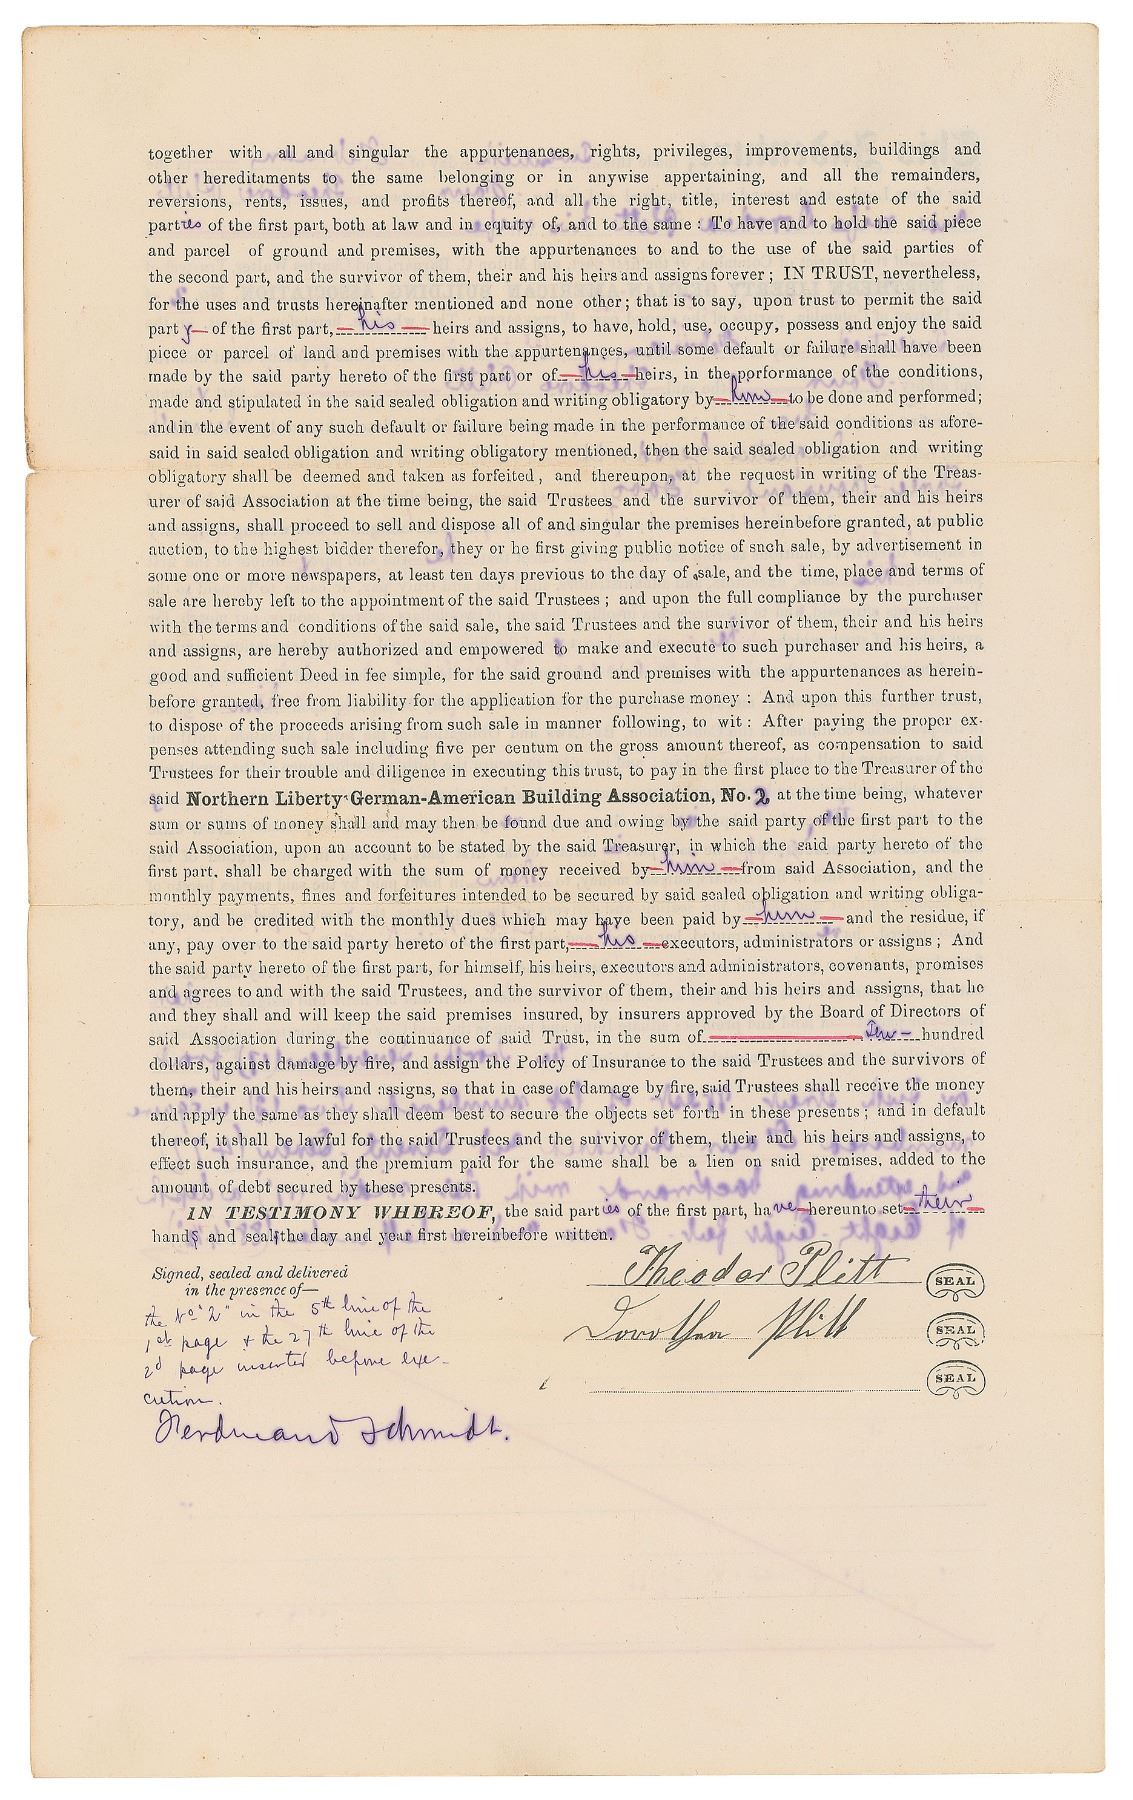 together with all and singular the appurtenances, rights, privileges, improvements, buildings and
other hereditaments to the same belonging or in anywise appertaining, and all the remainders,
reversions, rents, issues, and profits thereof, and all the right, title, interest and estate of the said
parties of the first part, both at law and in equity of, and to the same : To have and to hold the said piece
and parcel of ground and premises, with the appurtenances to and to the use of the said parties of
the second part, and the survivor of them, their and his heirs and assigns forever ; IN TRUST, nevertheless,
for the uses and trusts hereinafter mentioned and none other ; that is to say, upon trust to permit the said
party of the first part, his heirs and assigns, to have, hold, use, occupy, possess and enjoy the said
piece or parcel of land and premises with the appurtenances, until some default or failure shall have been
made by the said party hereto of the first part or of his heirs, in the performance of the conditions,
made and stipulated in the said sealed obligation and writing obligatory by him to be done and performed;
and in the event of any such default or failure being made in the performance of the said conditions as afore-
said in said sealed obligation and writing obligatory mentioned, then the said sealed obligation and writing
obligatory shall be deemed and taken as forfeited, and thereupon, at the request in writing of the Treas-
urer of said Association at the time being, the said Trustees and the survivor of them, their and his heirs
and assigns, shall proceed to sell and dispose all of and singular the premises hereinbefore granted, at public
auction, to the highest bidder therefor, they or he first giving public notice of such sale, by advertisement in
some one or more newspapers, at least ten days previous to the day of sale, and the time, place and terms of
sale are hereby left to the appointment of the said Trustees ; and upon the full compliance by the purchaser
with the terms and conditions of the said sale, the said Trustees and the survivor of them, their and his heirs
and assigns, are hereby authorized and empowered to make and execute to such purchaser and his heirs, a
good and sufficient Deed in fee simple, for the said ground and premises with the appurtenances as herein-
before granted, free from liability for the application for the purchase money : And upon this further trust,
to dispose of the proceeds arising from such sale in manner following, to wit : After paying the proper ex-
penses attending such sale including five per centum on the gross amount thereof, as compensation to said
Trustees for their trouble and diligence in executing this trust, to pay in the first place to the Treasurer of the
said Northern Liberty German-American Building Association, No. 2, at the time being, whatever
sum or sums of money shall and may then be found due and owing by the said party of the first part to the
said Association, upon an account to be stated by the said Treasurer, in which the said party hereto of the
first part, shall be charged with the sum of money received by him from said Association, and the
monthly payments, fines and forfeitures intended to be secured by said sealed obligation and writing obliga-
tory, and be credited with the monthly dues which may have been paid by him and the residue, if
any, pay over to the said party hereto of the first part, his executors, administrators or assigns ; And
the said party hereto of the first part, for himself, his heirs, executors and administrators, covenants, promises
and agrees to and with the said Trustees, and the survivor of them, their and his heirs and assigns, that he
and they shall and will keep the said premises insured, by insurers approved by the Board of Directors of
said Association during the continuance of said Trust, in the sum of Ten hundred
dollars, against damage by fire, and assign the Policy of Insurance to the said Trustees and the survivors of
them, their and his heirs and assigns, so that in case of damage by fire, said Trustees shall receive the money
and apply the same as they shall deem best to secure the objects set forth in these presents ; and in default
thereof, it shall be lawful for the said Trustees and the survivor of them, their and his heirs and assigns, to
effect such insurance, and the premium paid for the same shall be a lien on said premises, added to the
amount of debt secured by these presents.
IN TESTIMONY WHEREOF, the said parties of the first part, have hereunto set their
hands and seals the day and year first hereinbefore written.
Signed, sealed and delivered
in the presence of—
the No "2" in the 5th line of the
1st page & the 27th line of the
2d page inserted before exe-
cution.
Ferdinand Schmidt.
Theodor Plitt SEAL
Dorothea Plitt SEAL
SEAL